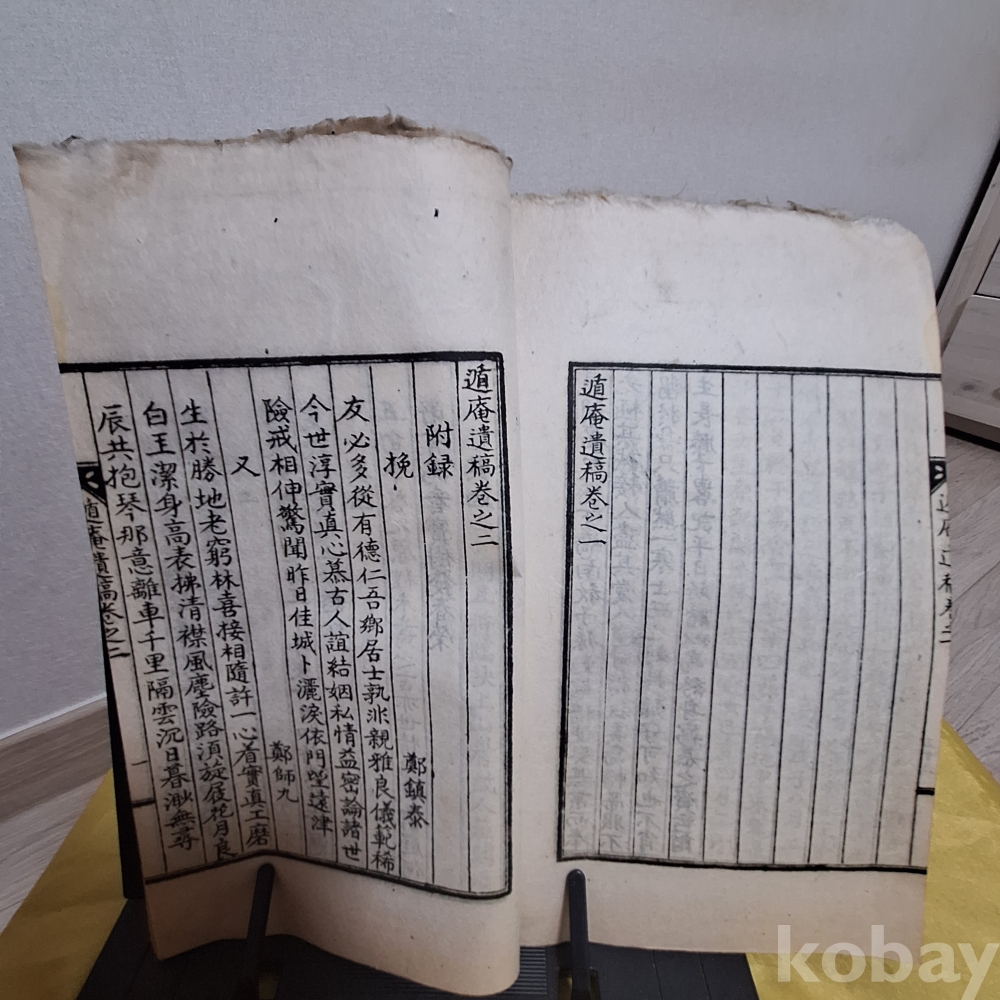 遁庵遺稿卷之一
遁庵遺稿卷之二
附録
挽 鄭鎮泰
友必多從有德仁吾鄉居士孰非親雅良儀範稀
今世淳實真心慕古人誼結姻私情益密論諸世
險戒相伸驚聞昨日佳城卜灑淚依門望遠津
又 鄭師九
生於勝地老窮林喜接相隨許一心着實真工磨
白王潔身高表拂清襟風塵險路須旋屐花月良
辰共抱琴那意離車千里隔雲沉日暮渺無尋
遁庵遺稿卷之二
一
kobay